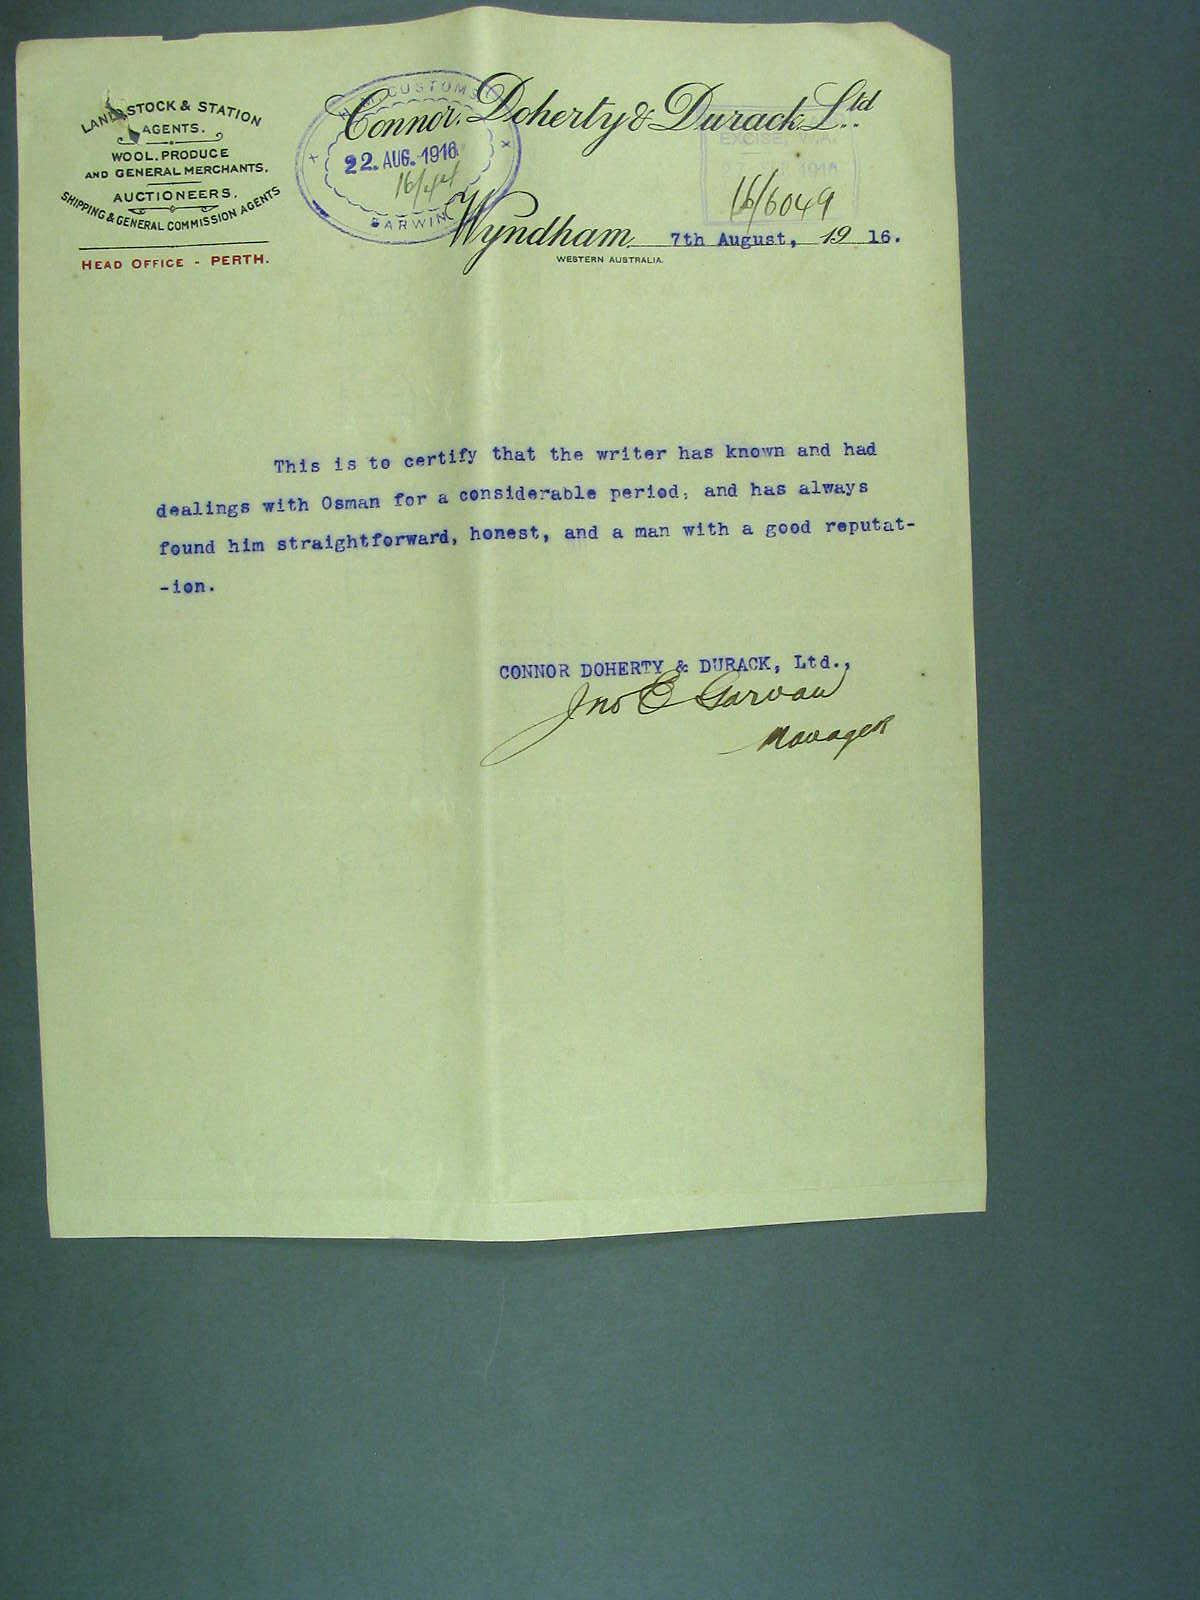 LAND, STOCK & STATION
AGENTS.
WOOL, PRODUCE
AND GENERAL MERCHANTS.
AUCTIONEERS.
SHIPPING & GENERAL COMMISSION AGENTS
HEAD OFFICE - PERTH.
Connor, Doherty & Durack, Ltd.
H.M. CUSTOMS
22. AUG. 1916
DARWIN
EXCISE, W.A.
1916
16/6049
Wyndham, 7th August, 19 16.
WESTERN AUSTRALIA.
This is to certify that the writer has known and had
dealings with Osman for a considerable period, and has always
found him straightforward, honest, and a man with a good reputat-
-ion.
CONNOR DOHERTY & DURACK, Ltd.,
Jno C Garvan
Manager